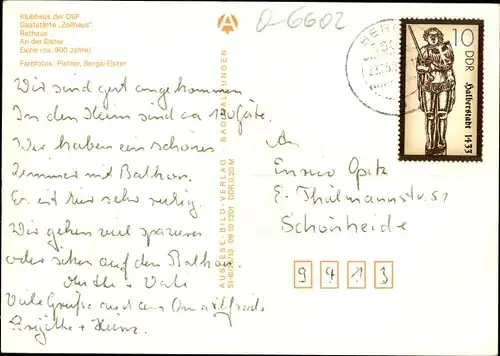 Klubhaus der DSF
Gaststätte „Zollhaus"
Rathaus
An der Elster
Eiche (ca. 900 Jahre)
Farbfotos: Piehler, Berga/Elster
A-6602
AUSLESE-BILD-VERLAG BAD SALZUNGEN
09 10 1201 DDR 0,20 M
BERGA
10
DDR
Halberstadt 1433
Wir sind gut angekommen
In dem Heim sind ca 130 Gäste.
Wir haben ein schönes
Zimmer mit Balkon.
Es ist hier sehr ruhig.
Wir gehen viel spazieren
oder sitzen auf dem Balkon.
Mutti + Vati
Viele Grüße auch an Oma
Brigitte + Heinz
An
Enrico Opitz
E. Thälmannstr. 51
Schönheide
9413